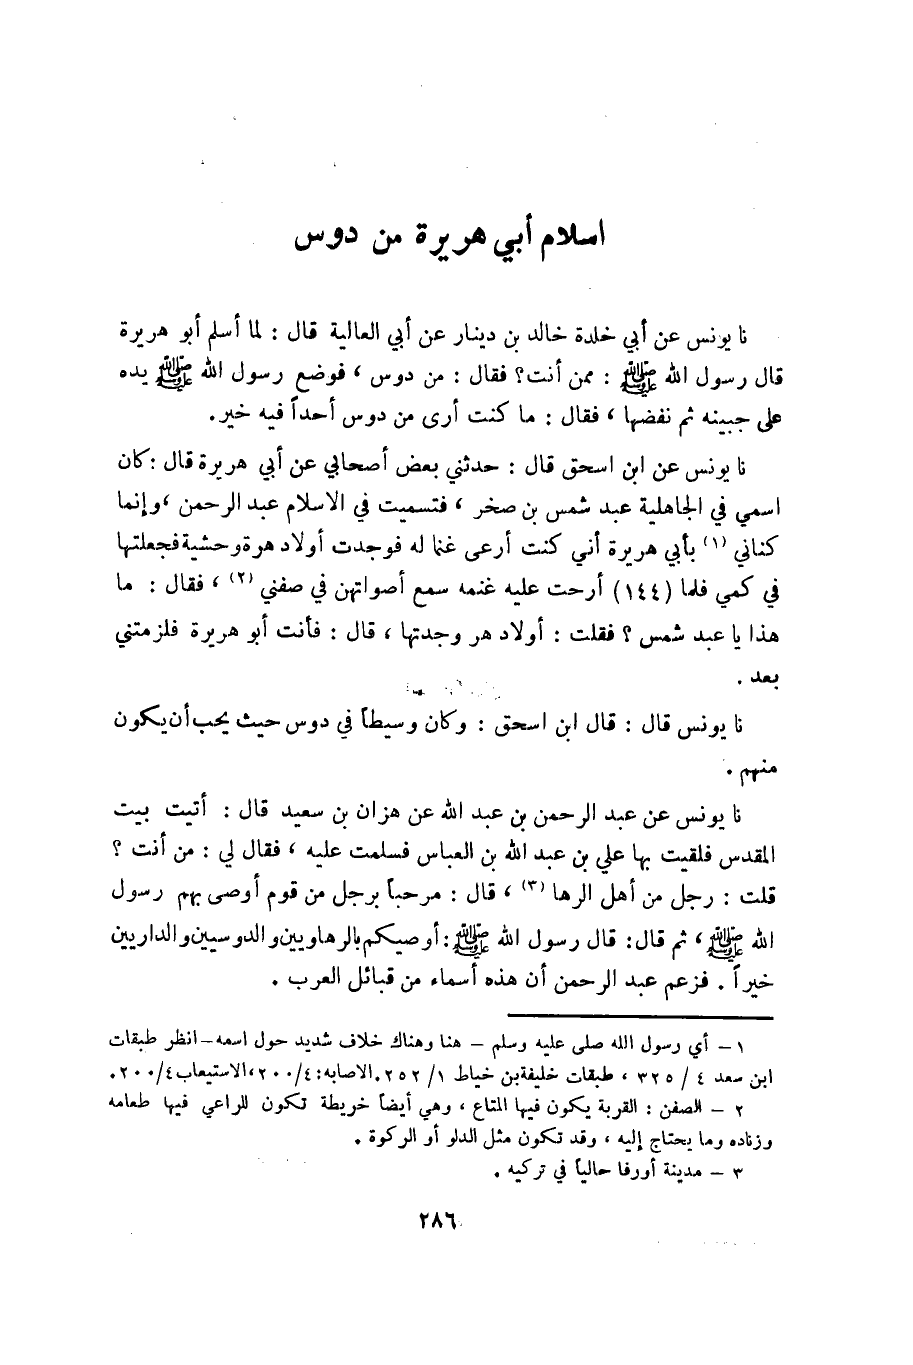 اسلام أبي هريرة من دوس
نا يونس عن أبي خلدة خالد بن دينار عن أبي العالية قال : لما أسلم أبو هريرة
قال رسول الله ﷺ : ممن أنت؟ فقال : من دوس ، فوضع رسول الله ﷺ يده
على جبينه ثم نفضها ، فقال : ما كنت أرى من دوس أحداً فيه خير.
نا يونس عن ابن اسحق قال : حدثني بعض أصحابي عن أبي هريرة قال :كان
اسمي في الجاهلية عبد شمس بن صخر ، فتسميت في الاسلام عبد الرحمن ،وإنما
كناني (١) بأبي هريرة أني كنت أرعى غنما له فوجدت أولاد هرة وحشية فجعلتها
في كمي فلما (١٤٤) أرحت عليه غنمه سمع أصواتهن في صفني (٢) ، فقال : ما
هذا يا عبد شمس ؟ فقلت : أولاد هر وجدتها ، قال : فأنت أبو هريرة فلزمتني
بعد .
نا يونس قال : قال ابن اسحق : وكان وسيطاً في دوس حيث يحب أن يكون
منهم .
نا يونس عن عبد الرحمن بن عبد الله عن هزان بن سعيد قال : أتيت بيت
المقدس فلقيت بها علي بن عبد الله بن العباس فسلمت عليه ، فقال لي : من أنت ؟
قلت : رجل من أهل الرها (٣) ، قال : مرحباً برجل من قوم أوصى بهم رسول
الله ﷺ ، ثم قال: قال رسول الله ﷺ :أوصيكم بالرهاويين والدوسيين والداريين
خيراً . فزعم عبد الرحمن أن هذه أسماء من قبائل العرب .
١ – أي رسول الله صلى عليه وسلم – هنا وهناك خلاف شديد حول اسمه – انظر طبقات
ابن سعد ٤ / ٣٢٥ ، طبقات خليفة بن خياط ١/ ٢٥٢ .الاصابه: ٤/ ٢٠٠ ،الاستيعاب ٤/ ٢٠٠ .
٢ – الصفن : القربة يكون فيها المتاع ، وهي أيضاً خريطة تكون للراعي فيها طعامه
وزناده وما يحتاج إليه ، وقد تكون مثل الدلو أو الركوة .
٣ – مدينة أورفا حالياً في تركيه .
٢٨٦